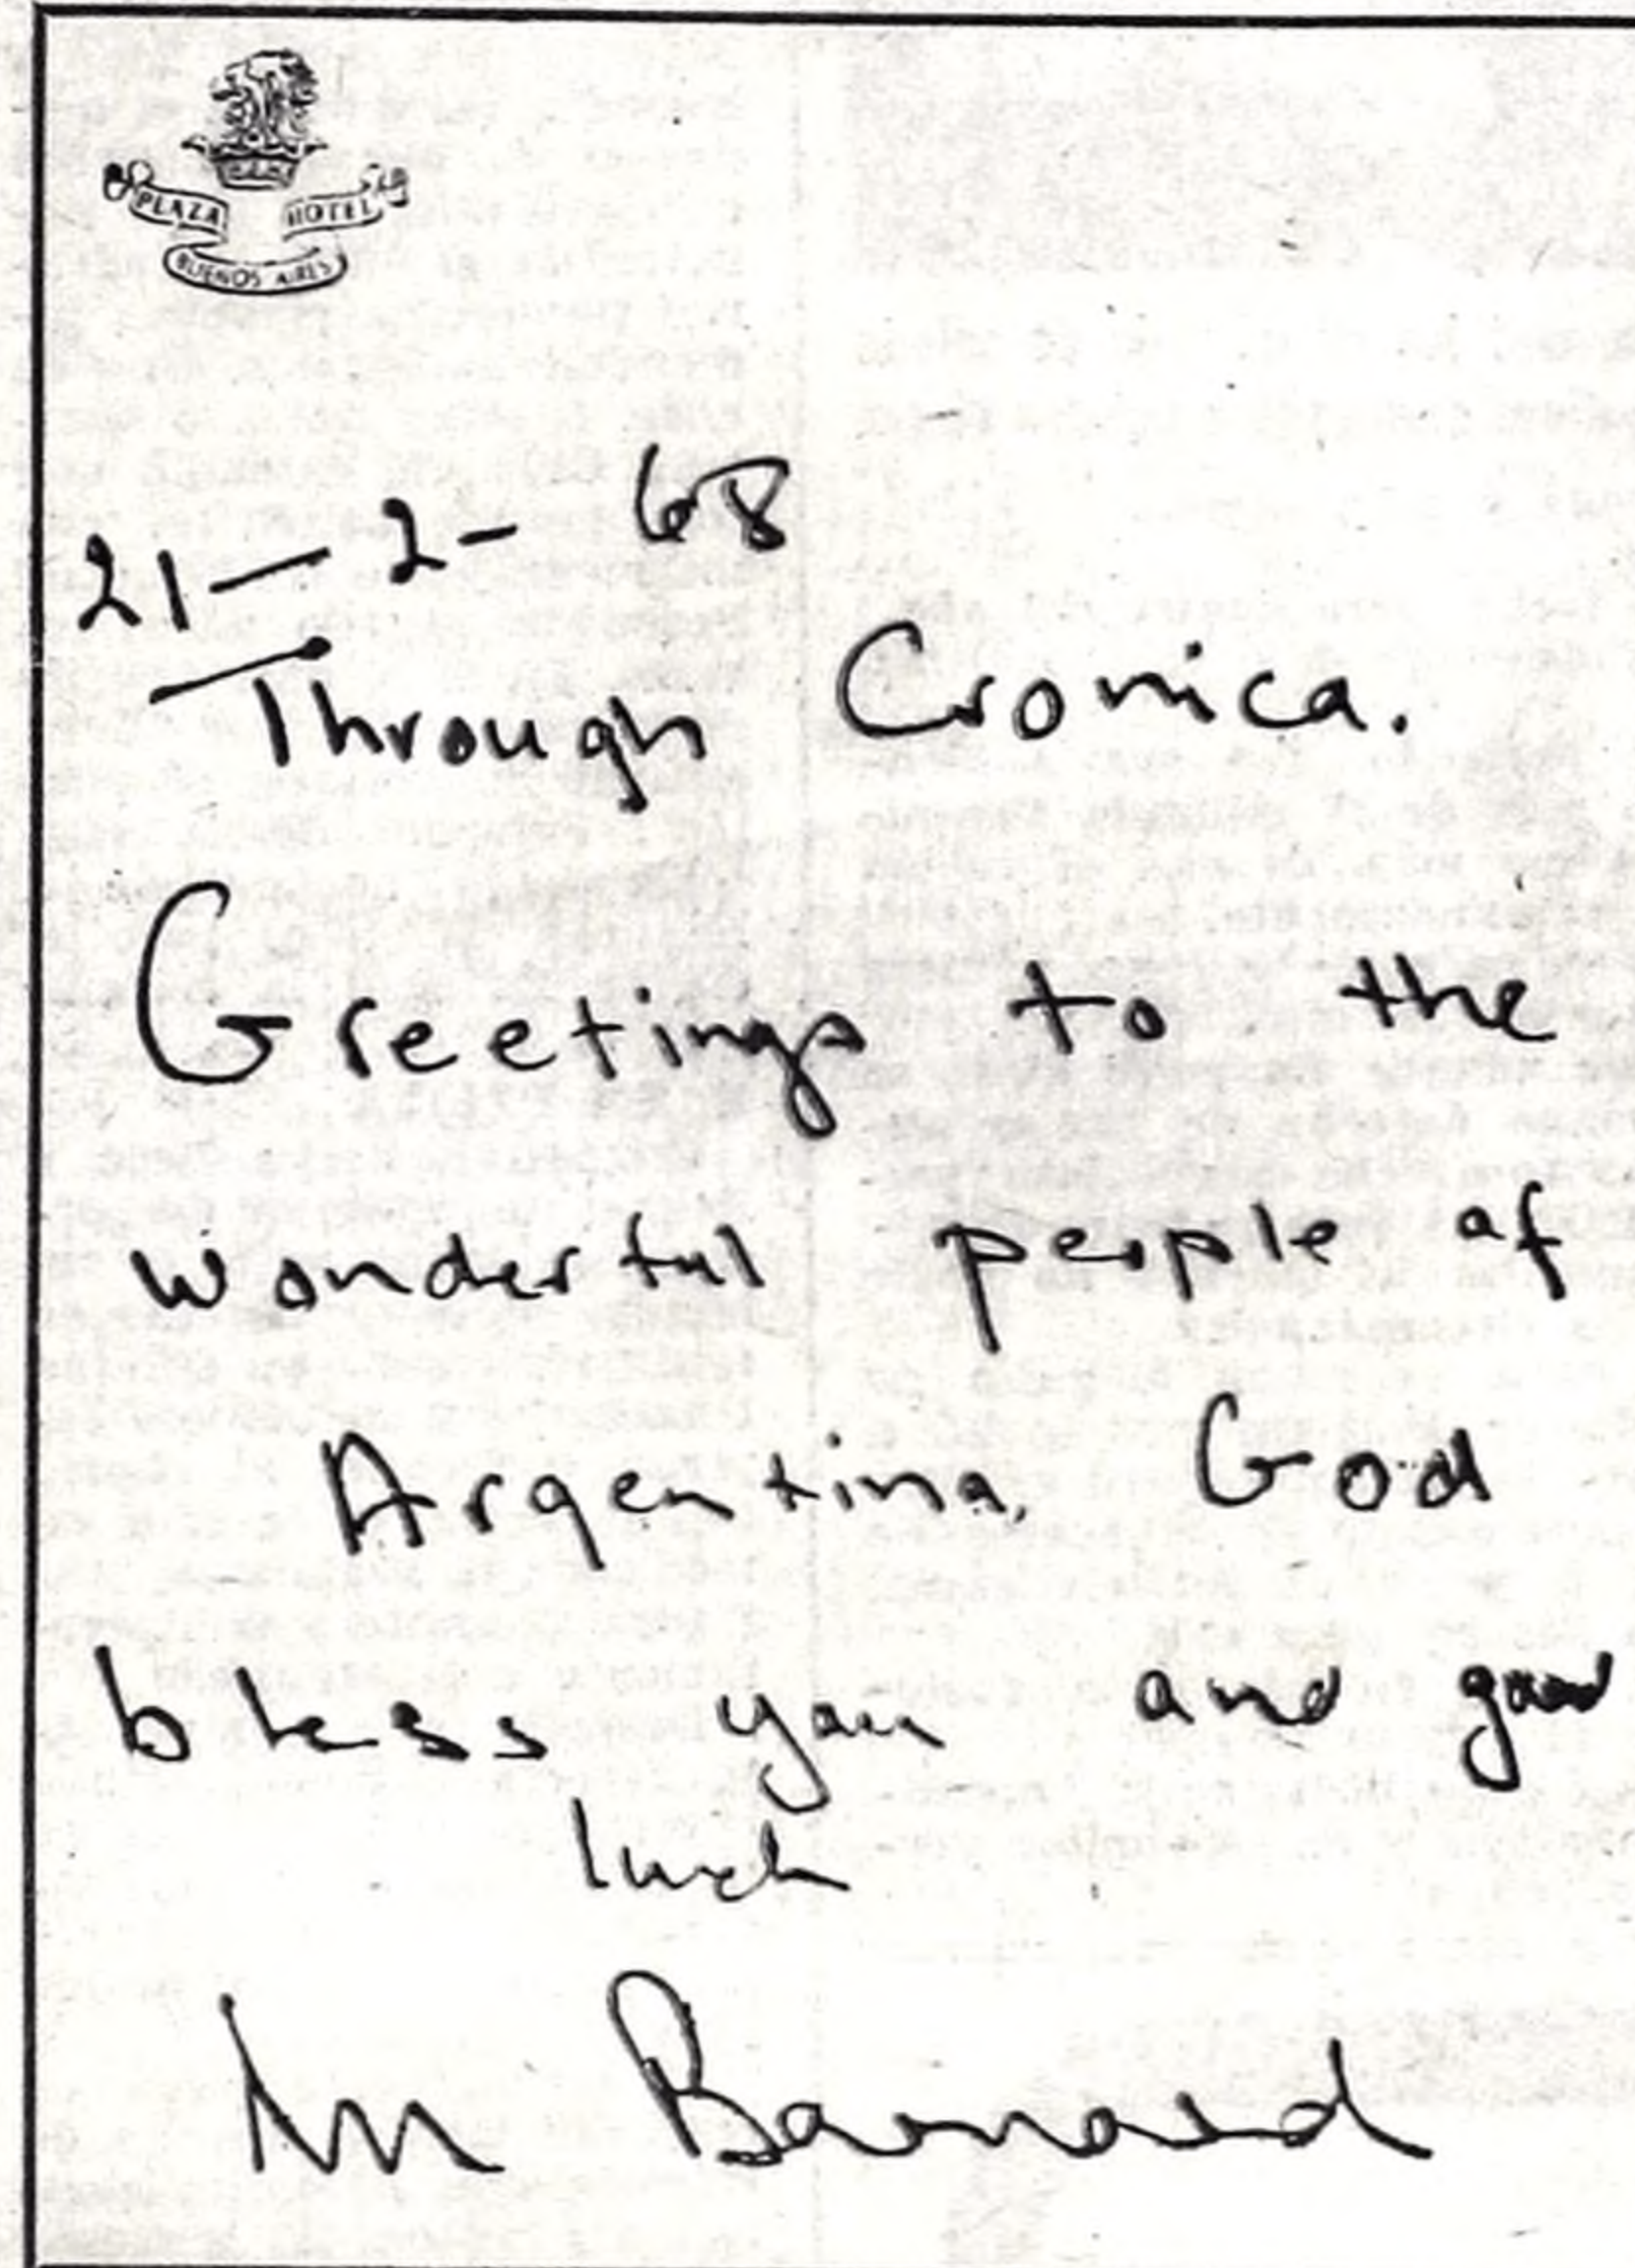 PLAZA HOTEL
BUENOS AIRES
21-2-68
Through Cronica.
Greetings to the
wonderful people of
Argentina, God
bless you and good
luck
Barnard